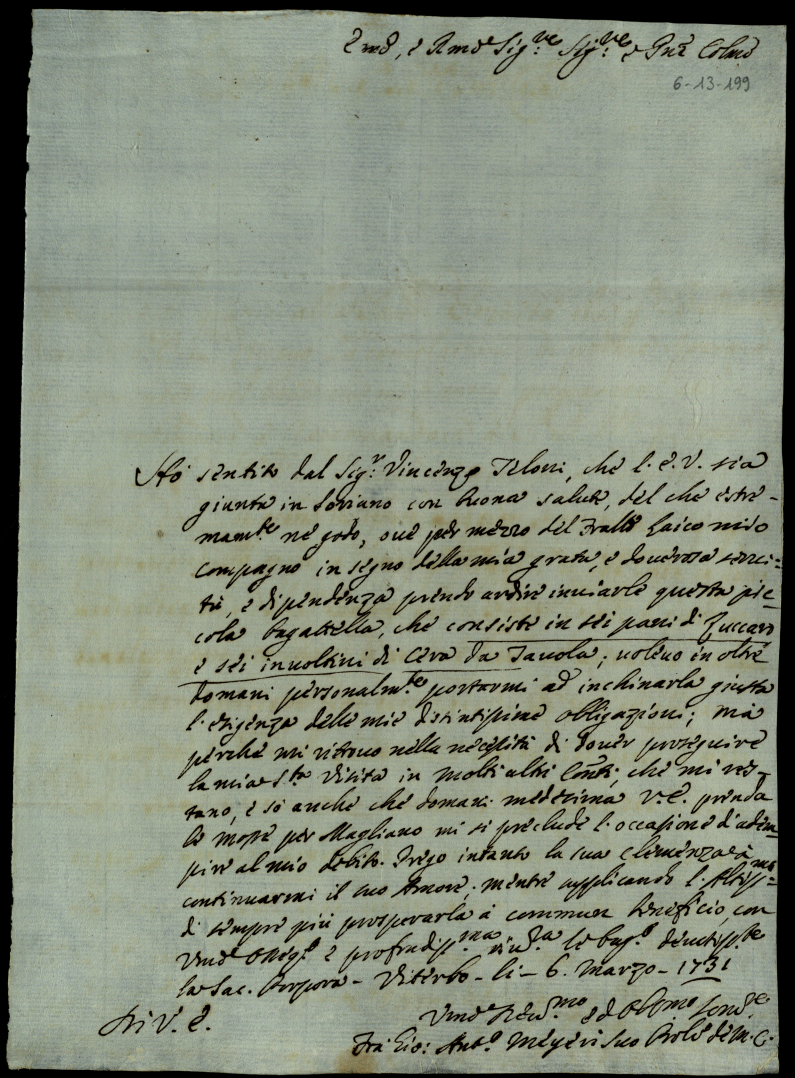 Emo, e Rmo Sig.re Sig.re e Pne Colmo
6-13-199
Hò sentito dal Sig.r Vincenzo Teloni, che l'E.V. sia
giunta in Soriano con buona salute, del che estre-
mam.te ne godo, quì per mezzo del Fratello Laico mio
Compagno in segno della mia grata, e doverosa servi=
tù, e dipendenza prendo ardire inviarle questa pic=
cola bagattella, che consiste in sei pani di Zuccaro
e sei involtini di Cera da Tavola; volevo in oltre
domani personalm.te portarmi ad inchinarla giusta
l'esigenza delle mie distintissime obligazioni; mà
perche mi ritrovo nella necessità di dover proseguire
la mia S.ta Visita in molti altri Conti, che mi res-
tano, e sò anche che domani medesima V.E. prenda
le mosse per Magliano mi si preclude l'occasione d'adem
pire al mio debito. Prego intanto la sua Clemenza à
continuarmi il suo Amore, mentre supplicando l'Altiss.mo
di sempre più prosperarla à commun beneficio, con
e profondiss.ma le bag.o
la Sac. Porpora - Viterbo - li - 6. Marzo - 1731
Di V. E.
ed Obbmo
Frà Gio: Ant.o suo de M. C.